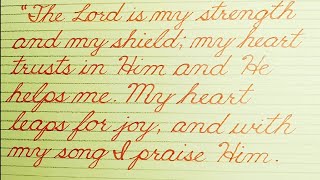 "The Lord is my strength
and my shield; my heart
trusts in Him and He
helps me. My heart
leaps for joy, and with
my song I praise Him.